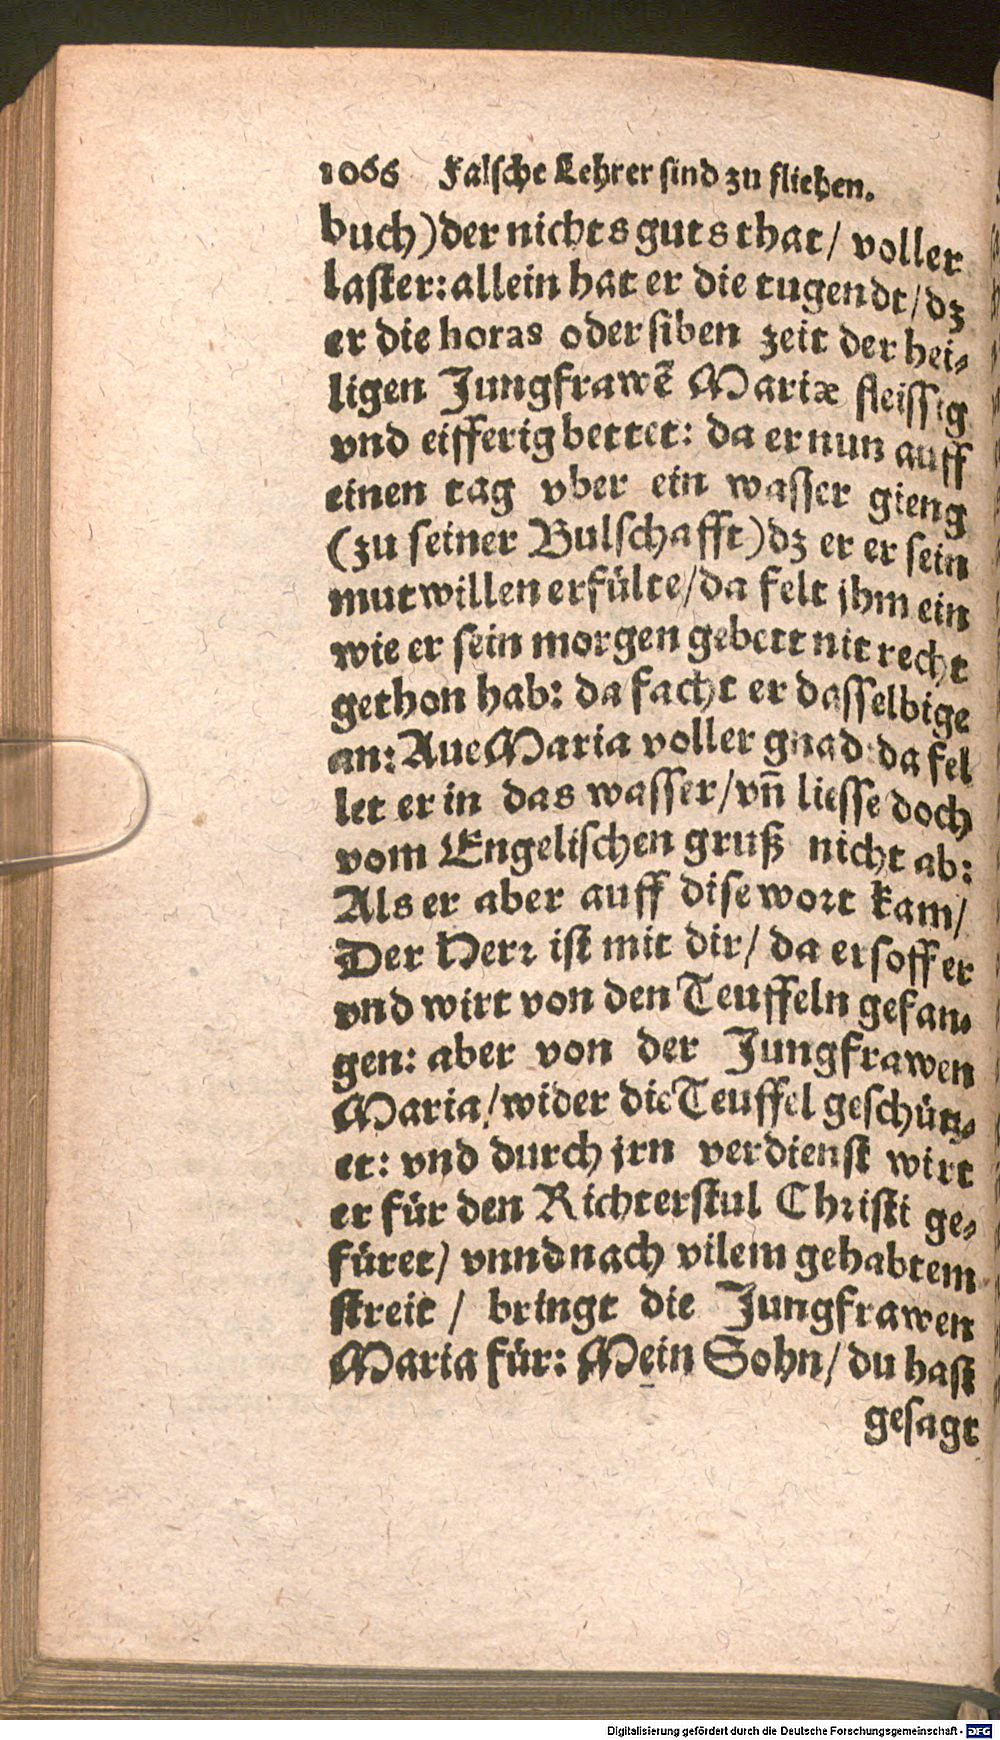 1066 Falsche Lehrer sind zu fliehen.
buch) der nichts guts that / voller
laster: allein hat er die tugendt / dz
er die horas oder siben zeit der hei-
ligen Jungfrawẽ Mariæ fleissig
vnd eifferig bettet: da er nun auff
einen tag vber ein wasser gieng
(zu seiner Bulschafft) dz er er sein
mutwillen erfülte / da felt jhm ein
wie er sein morgen gebett nit recht
gethon hab: da facht er dasselbige
an: Aue Maria voller gnad: da fel
let er in das wasser / vñ liesse doch
vom Engelischen gruß nicht ab:
Als er aber auff dise wort kam /
Der Herr ist mit dir / da ersoff er
vnd wirt von den Teuffeln gefan-
gen: aber von der Jungfrawen
Maria / wider die Teuffel geschütz-
et: vnd durch jrn verdienst wirt
er für den Richterstul Christi ge-
füret / vnnd nach vilem gehabtem
streit / bringt die Jungfrawen
Maria für: Mein Sohn / du hast
gesagt
Digitalisierung gefördert durch die Deutsche Forschungsgemeinschaft - DFG